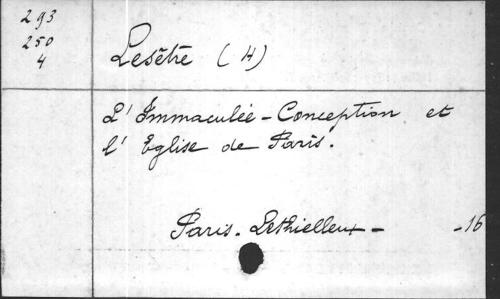 293
250
4
Lesêtre (H)
L'Immaculée-Conception et
l'Eglise de Paris.
Paris. Lethielleux - -16